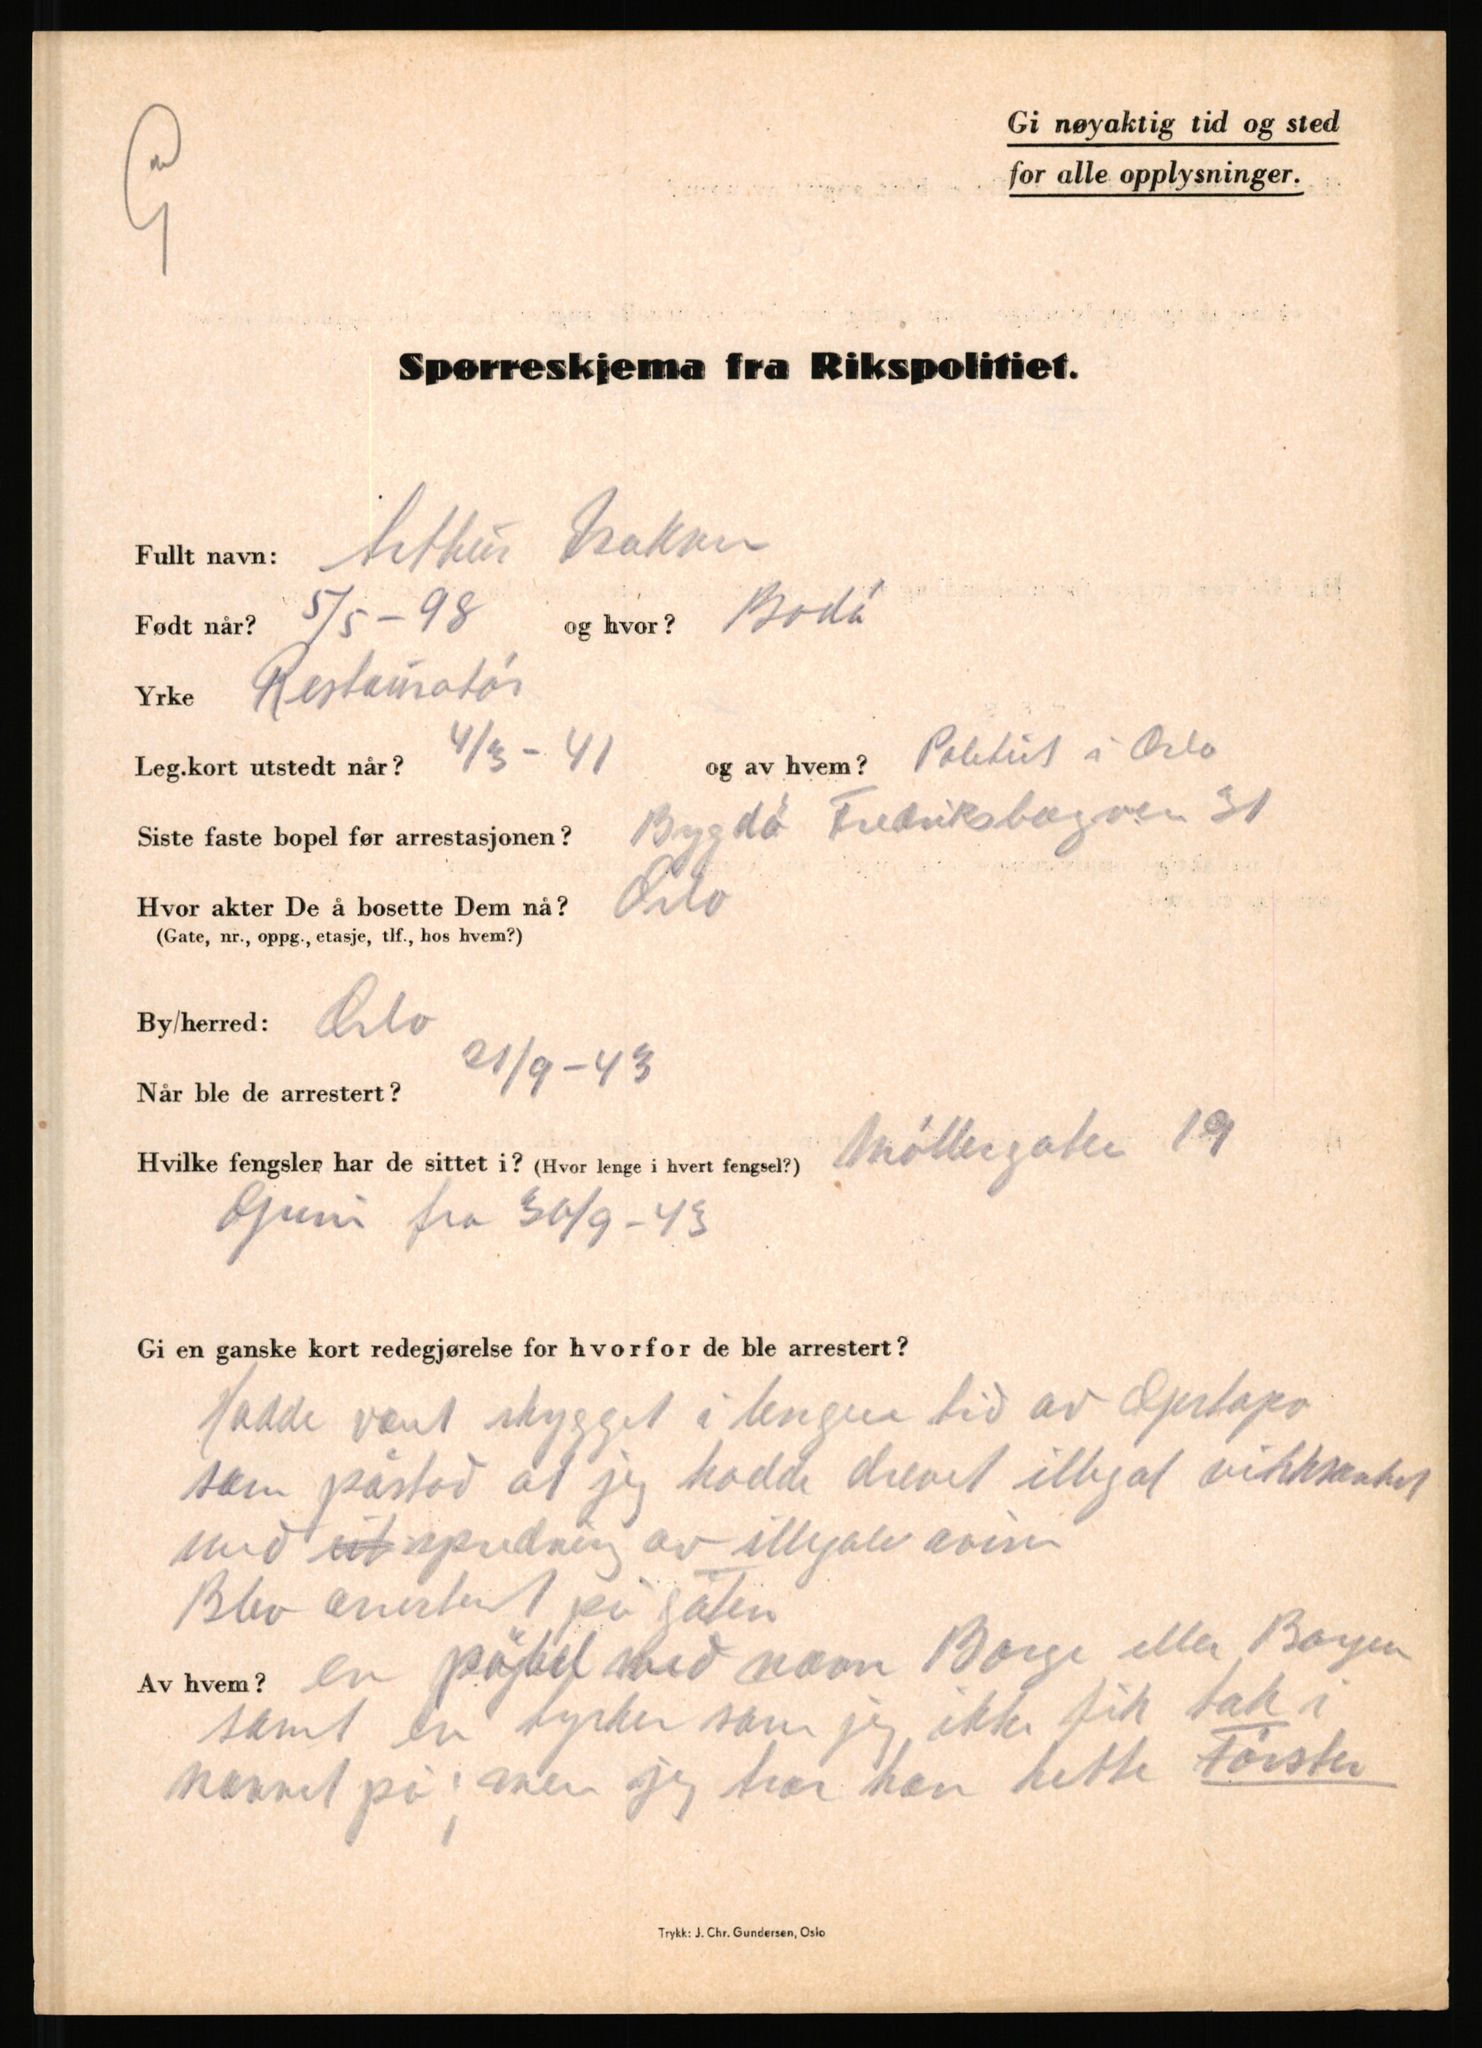 Gi nøyaktig tid og sted
for alle opplysninger.
Spørreskjema fra Rikspolitiet.
Fullt navn: Arthur Isaksen
Født når? 5/5-98 og hvor? Bodó
Yrke Restauratór
Leg.kort utstedt når? 4/3-41 og av hvem? Politiet i Oslo
Siste faste bopel før arrestasjonen? Bygdó Fredriksborgveien 31
Hvor akter De å bosette Dem nå? Oslo
(Gate, nr., oppg., etasje, tlf., hos hvem?)
By/herred: Oslo
Når ble de arrestert? 21/9-43
Hvilke fengsler har de sittet i? (Hvor lenge i hvert fengsel?) Móllergaten 19
Grini fra 30/9-43
Gi en ganske kort redegjørelse for hvorfor de ble arrestert?
Hadde vært skygget i lengere tid av Gestapo
som påstod at jeg hadde drevet illegal virksomhet
med ut spredning av illegale aviser
Blev arrestert på gaten
Av hvem? en med navn Borge eller Borgen
samt en tysker som jeg ikke fik tak i
navnet på; men jeg tror han hette Fórster
Trykk: J. Chr. Gundersen, Oslo